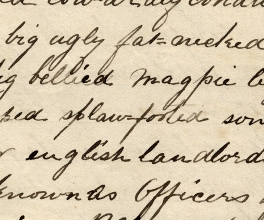 cowardly
big ugly fat-necked
bellied magpie
splaw-footed
english landlords
known as Officers